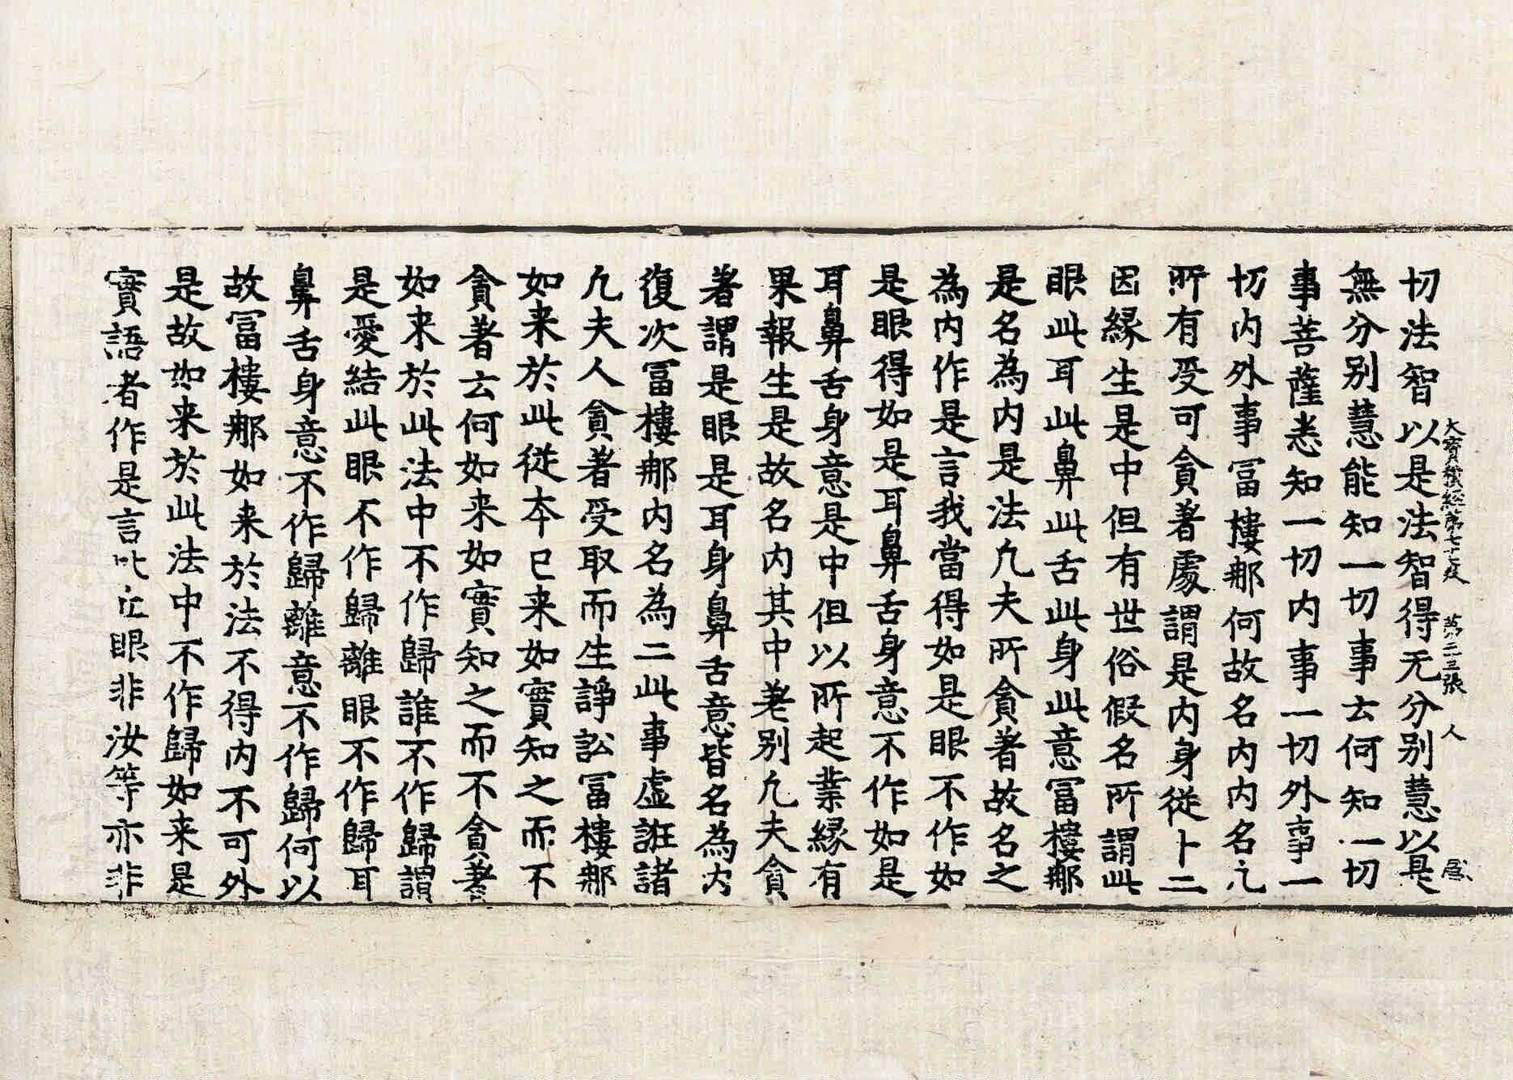 大寶積經第七十七卷 第二三張 人
切法智以是法智得无分别慧以是
無分别慧能知一切事云何知一切
事菩薩悉知一切内事一切外事一
切内外事冨樓那何故名内内名凢
所有受可貪著處謂是内身從卜二
因縁生是中但有世俗假名所謂此
眼此耳此鼻此舌此身此意冨樓那
是名為内是法凢夫所貪著故名之
為内作是言我當得如是眼不作如
是眼得如是耳鼻舌身意不作如是
耳鼻舌身意是中但以所起業縁有
果報生是故名内其中差别凢夫貪
著謂是眼是耳身鼻舌意皆名為内
復次冨樓那内名為二此事虛誑諸
凢夫人貪著受取而生諍訟冨樓那
如来於此從本已来如實知之而不
貪著云何如来如實知之而不貪著
如来於此法中不作歸誰不作歸謂
是愛結此眼不作歸離眼不作歸耳
鼻舌身意不作歸離意不作歸何以
故冨樓那如来於法不得内不可外
是故如来於此法中不作歸如来是
實語者作是言吡丘眼非汝等亦非